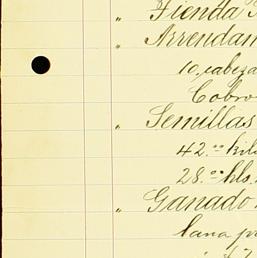 „ Tienda
„ Arrendam
10 cabeza
Cobro
„ Semillas
42.00 kil
28.00 hls.
„ Ganado
lana pa